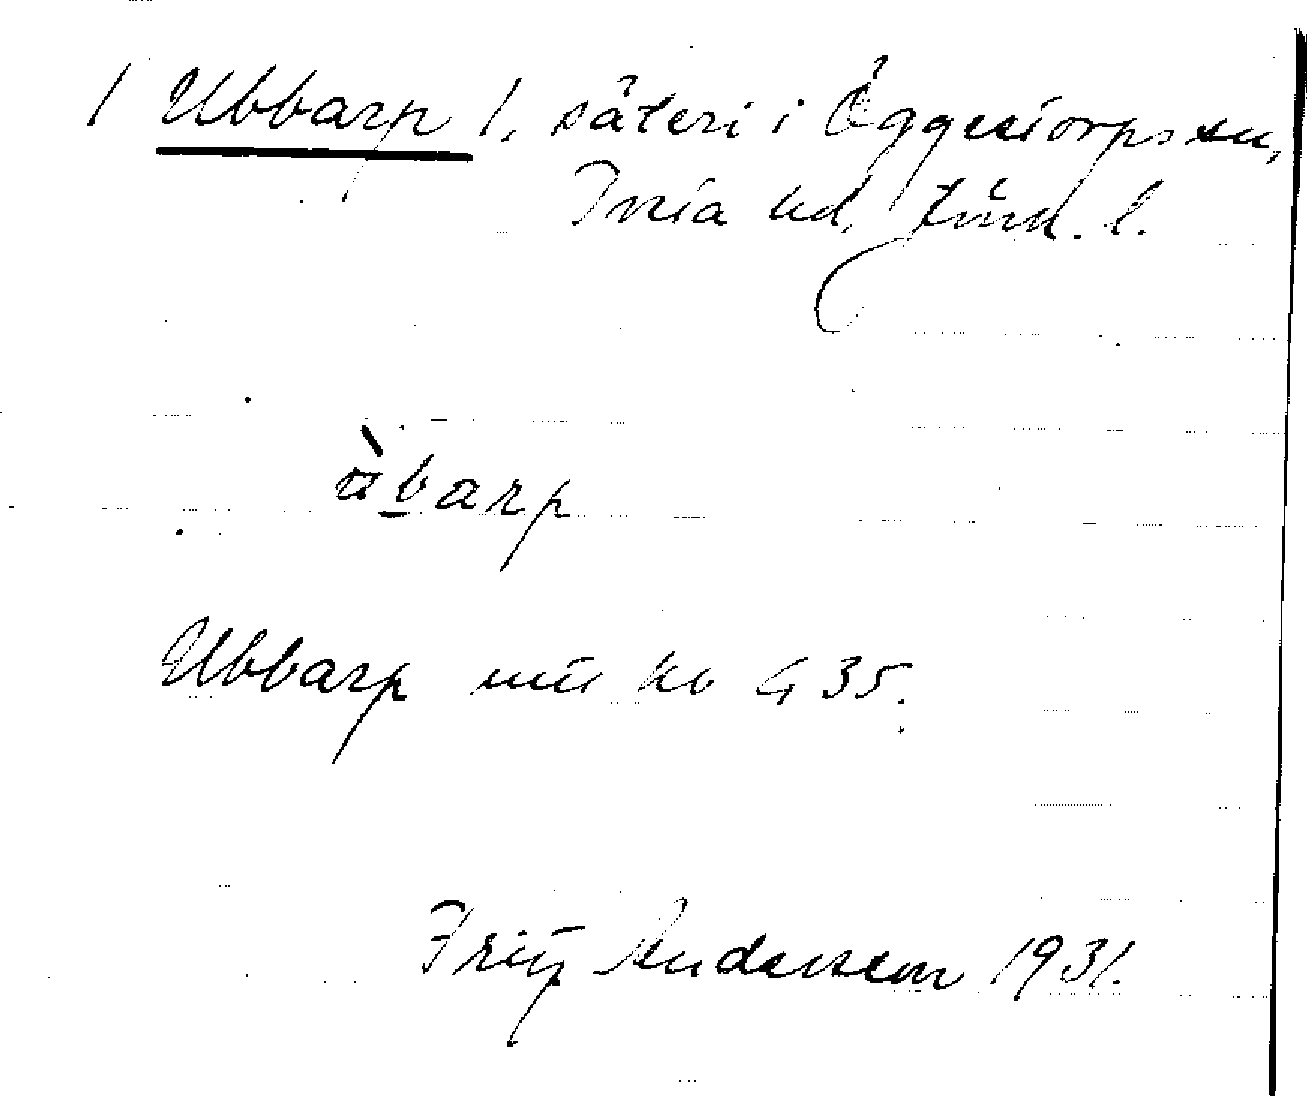 1 Ubbarp 1, säteri i Öggestorps sn,
Tveta hd, Jönk. l.
ùbarp
Ubbarp mtl kb G 35.
Fritz Andersson 1931.